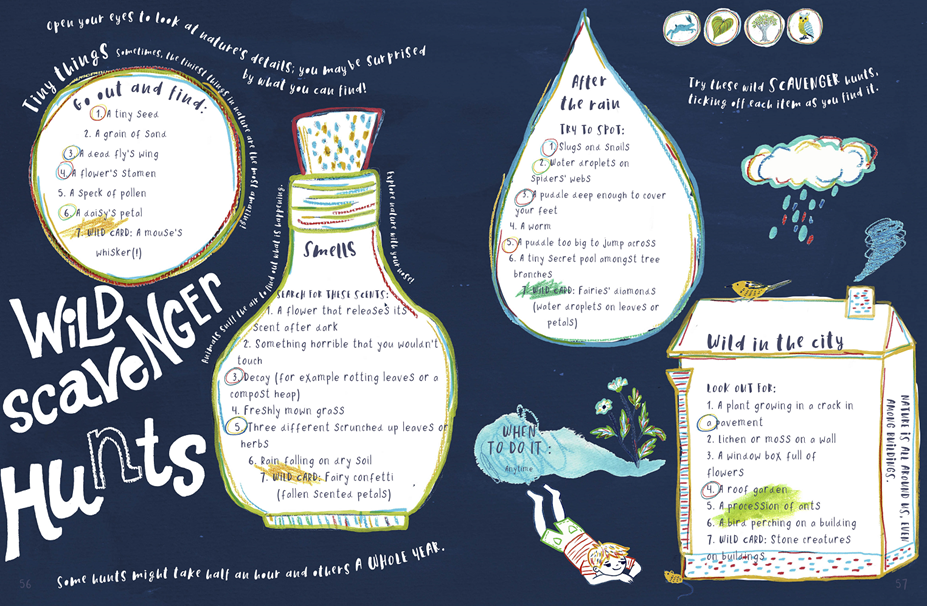 Open your eyes to look at nature's details; you may be surprised
by what you can find!
Tiny things Sometimes, the tiniest things in nature are the most amazing!
Go out and find:
1. A tiny seed
2. A grain of sand
3. A dead fly's wing
4. A flower's stamen
5. A speck of pollen
6. A daisy's petal
7. WILD CARD: A mouse's
whisker(!)
WILD
SCAVENGER
HUNTS
Animals sniff the air to find out what is happening.
Explore nature with your nose!
Smells
SEARCH FOR THESE SCENTS:
1. A flower that releases its
scent after dark
2. Something horrible that you wouldn't
touch
3. Decay (for example rotting leaves or a
compost heap)
4. Freshly mown grass
5. Three different scrunched up leaves or
herbs
6. Rain falling on dry soil
7. WILD CARD: Fairy confetti
(fallen scented petals)
Some hunts might take half an hour and others A WHOLE YEAR.
56
After
the rain
TRY TO SPOT:
1. Slugs and snails
2. Water droplets on
spiders' webs
3. A puddle deep enough to cover
your feet
4. A worm
5. A puddle too big to jump across
6. A tiny secret pool amongst tree
branches
7. WILD CARD: Fairies' diamonds
(water droplets on leaves or
petals)
Try these wild SCAVENGER hunts,
ticking off each item as you find it.
WHEN
TO DO IT:
Anytime
Wild in the city
LOOK OUT FOR:
1. A plant growing in a crack in
a pavement
2. Lichen or moss on a wall
3. A window box full of
flowers
4. A roof garden
5. A procession of ants
6. A bird perching on a building
7. WILD CARD: Stone creatures
on buildings
NATURE IS ALL AROUND US, EVEN
AMONG BUILDINGS.
57